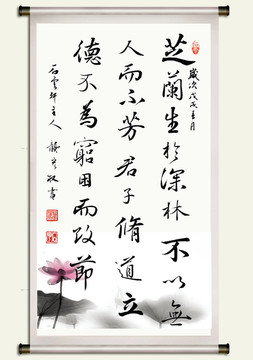 芝蘭生於深林不以無
歲次戊戌
人而不芳君子脩道立
德不為窮困而改節
主人
書